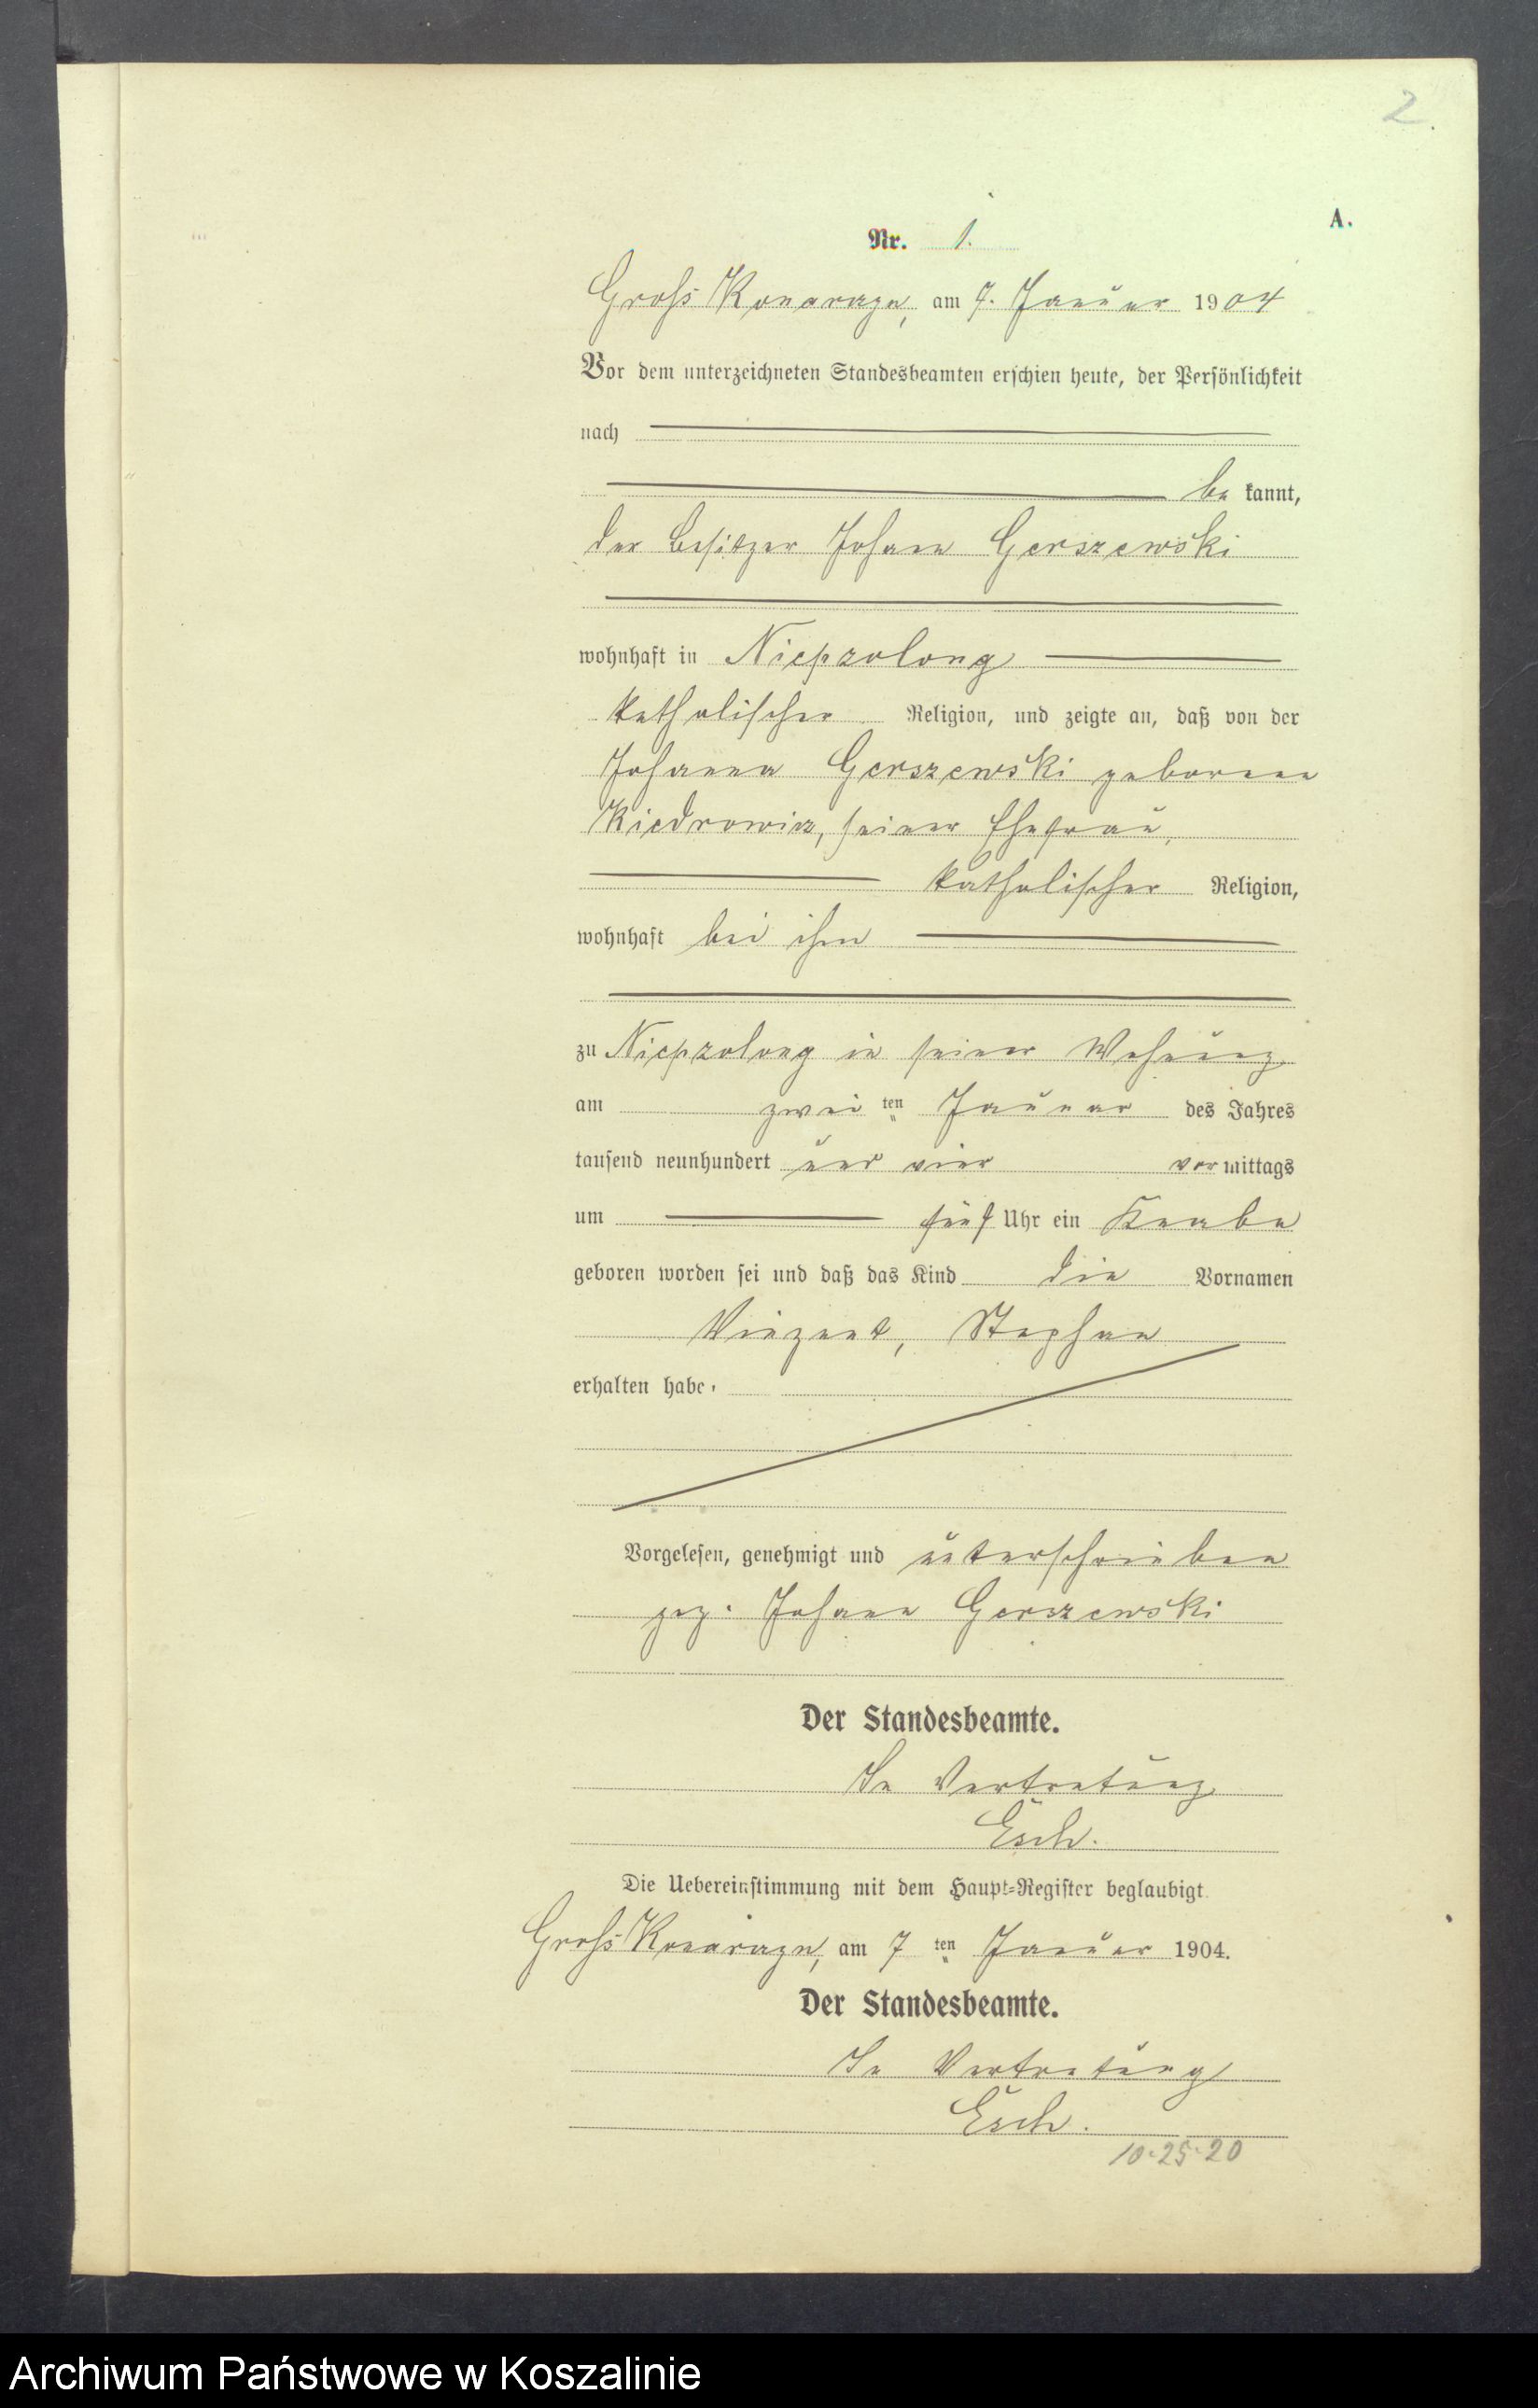 2.
A.
Nr. 1.
Groß Konarzyn, am 7. Januar 1904
Vor dem unterzeichneten Standesbeamten erschien heute, der Persönlichkeit
nach
be kannt,
der Besitzer Johann Gerszewski
wohnhaft in Niepzolong
katholischer Religion, und zeigte an, daß von der
Johanna Gerszewski geborene
Kiedrowicz, seiner Ehefrau,
katholischer Religion,
wohnhaft bei ihm
zu Niepzolong in seiner Wohnung
am zwei ten Januar des Jahres
tausend neunhundert und vier vor mittags
um fünf Uhr ein Knabe
geboren worden sei und daß das Kind die Vornamen
Vinzent, Stephan
erhalten habe.
Vorgelesen, genehmigt und unterschrieben
gez. Johann Gerszewski
Der Standesbeamte.
In Vertretung
Esch.
Die Uebereinstimmung mit dem Haupt-Register beglaubigt
Groß Konarzyn, am 7 ten Januar 1904.
Der Standesbeamte.
In Vertretung
Esch.
10.25.20
Archiwum Państwowe w Koszalinie